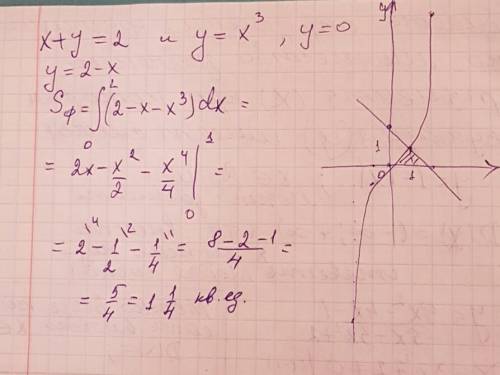 x+y=2 и y=x³, y=0
y=2-x
Sф=∫₀¹(2-x-x³)dx=
=2x-x²/2-x⁴/4|₀¹=
=2\⁴-1/2\²-1/4\¹=(8-2-1)/4=
=5/4=1 1/4 кв.ед.
y
1
0 1